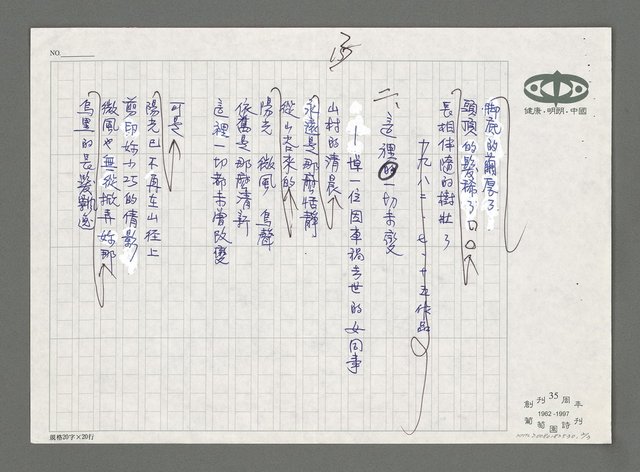 NO.
腳底的繭厚了
頭頂的髮稀了
長相伴隨的樹壯了
一九八二、七、廿五作品
二、這裡的一切未變
—悼一位因車禍去世的女同事
山村的清晨
永遠是那麼恬靜
從山谷來的
陽光 微風 鳥聲
依舊是那麼清新
這裡一切都未曾改變
可是
陽光已不再在山徑上
剪印妳小巧的倩影
微風也無從掀弄妳那
烏黑的長髮飄逸
健康·明朗·中國
創刊35周年
1962-1997
葡萄園詩刊
規格20字×20行